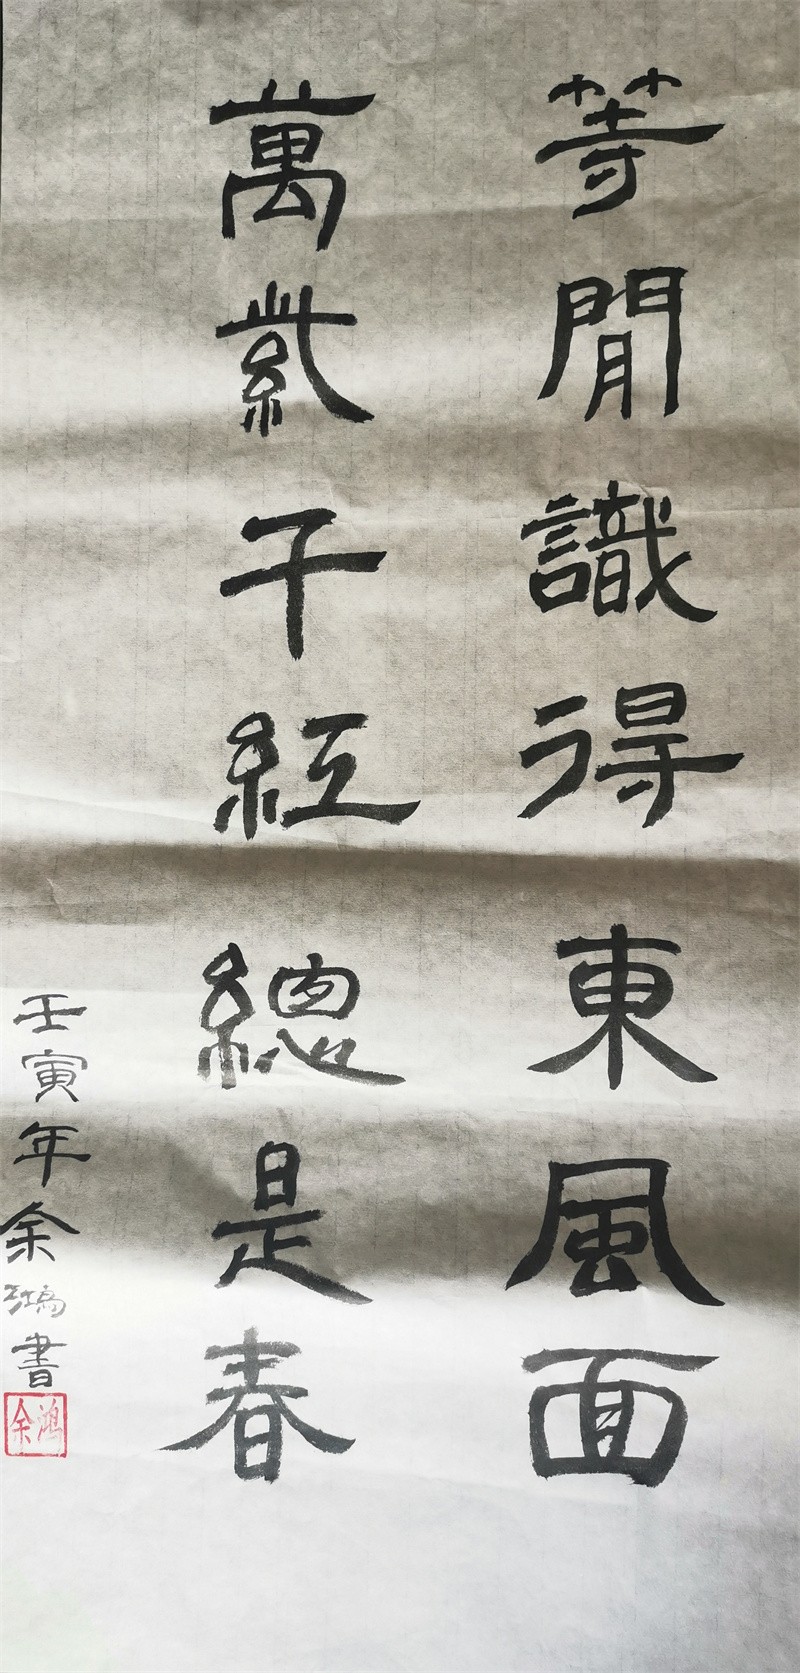 等閒識得東風面
萬紫千紅總是春
壬寅年余鴻書
余鴻